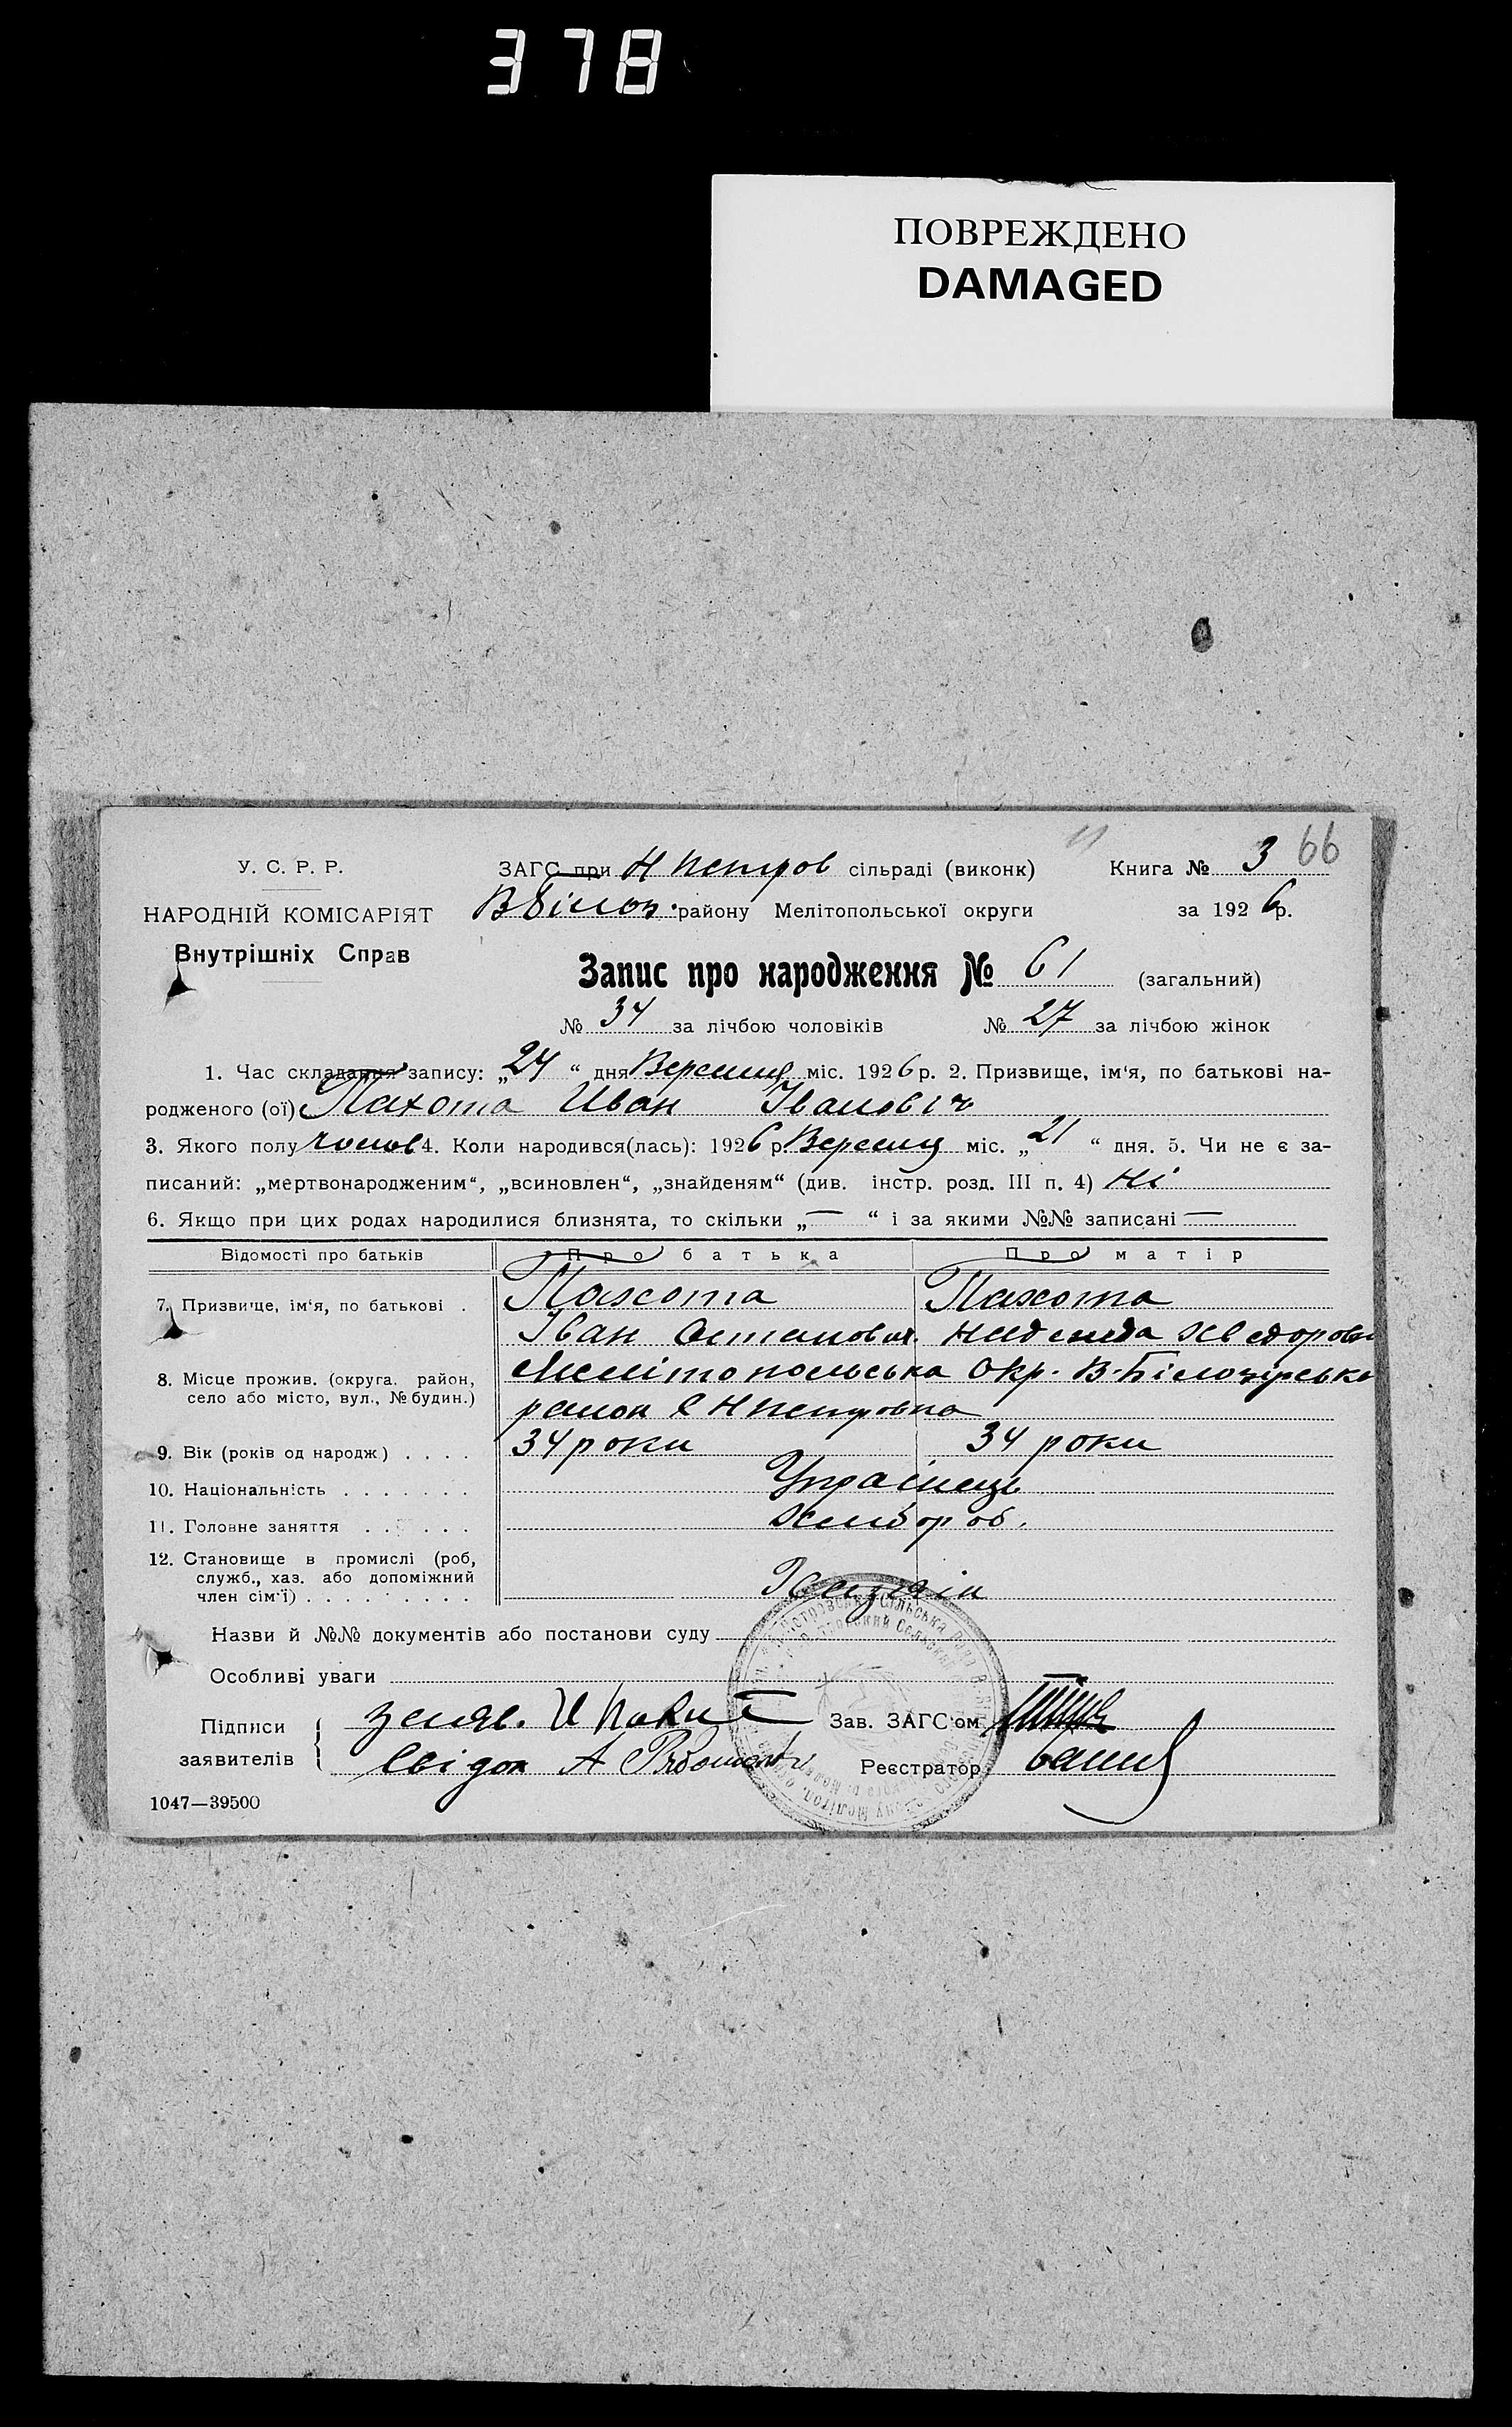 378
ПОВРЕЖДЕНО
DAMAGED
У. С. Р. Р.
НАРОДНІЙ КОМІСАРІЯТ
Внутрішніх Справ
ЗАГС при Н Петров сільраді (виконк) Книга № 3 66
В Білоз. району Мелітопольської округи за 1926 р.
Запис про народження № 61 (загальний)
№ 34 за лічбою чоловіків № 27 за лічбою жінок
1. Час складання запису: „24“ дня Вересня міс. 1926 р. 2. Призвище, ім'я, по батькові на-
родженого (ої) Пахота Иван Іванович
3. Якого полу чолов 4. Коли народився(лась): 1926 р. Вересня міс. „21“ дня. 5. Чи не є за-
писаний: „мертвонародженим“, „всиновлен“, „знайденям“ (див. інстр. розд. III п. 4) Ні
6. Якщо при цих родах народилися близнята, то скільки „—“ і за якими №№ записані —
Відомості про батьків Про батька Про матір
7. Призвище, ім'я, по батькові . Пахота Пахота
Іван Остапович. Надежда Хведоровн
8. Місце прожив. (округа, район, село або місто, вул., № будин.) Мелітопольська Окр. В-Білозірське
район с Н Петровка
9. Вік (років од народж) . . . . 34 роки 34 роки
10. Національність . . . . . . . Українець
11. Головне заняття . . . . . . Хлебороб.
12. Становище в промислі (роб,
служб., хаз. або допоміжний
член сім'ї) . . . . . . . . . Хазяїн
Назви й №№ документів або постанови суду
Особливі уваги
Підписи заявителів Заяв. И Зав. ЗАГС'ом
Свідок А Реєстратор
1047—39500